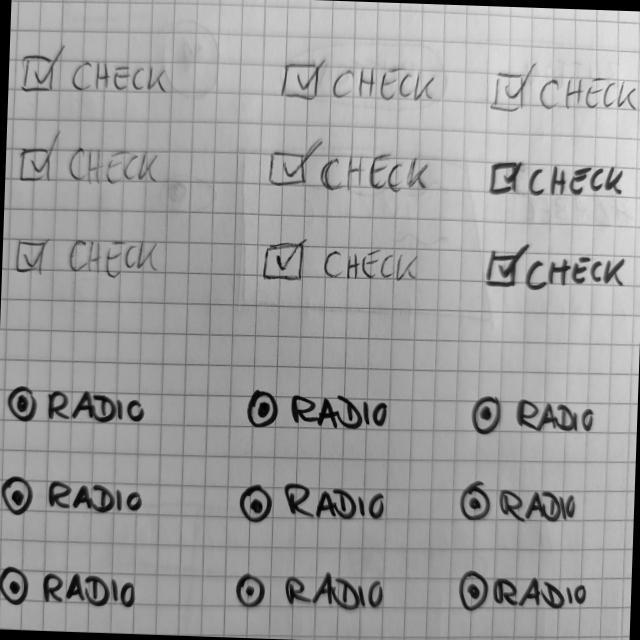 ☑ CHECK ☑ CHECK ☑ CHECK
☑ CHECK ☑ CHECK ☑ CHECK
☑ CHECK ☑ CHECK ☑ CHECK
◉ RADIO ◉ RADIO ◉ RADIO
◉ RADIO ◉ RADIO ◉ RADIO
◉ RADIO ◉ RADIO ◉ RADIO